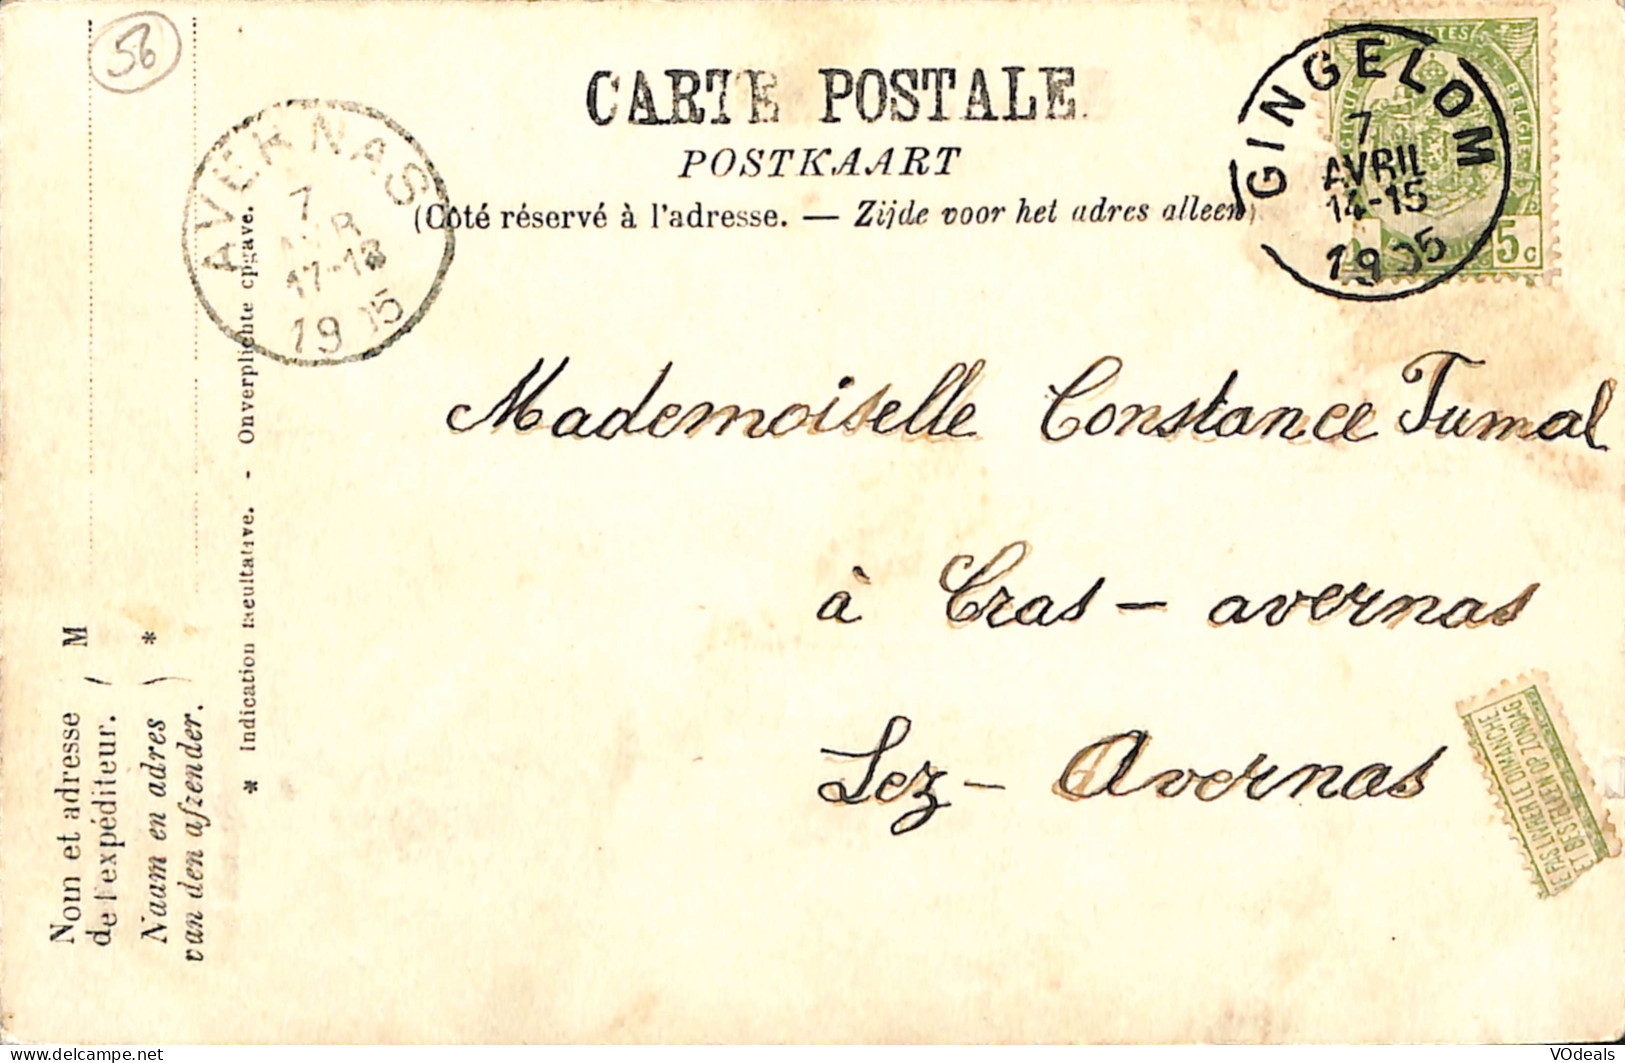 56
CARTE POSTALE
POSTKAART
(Côté réservé à l'adresse. — Zijde voor het adres alleen)
AVERNAS
7
AVR
17-18
1905
GINGELOM
7
AVRIL
14-15
1905
5c
Mademoiselle Constance Tumal
à Cras - avernas
Lez - Avernas
NE PAS LIVRER LE DIMANCHE
NIET BESTELLEN OP ZONDAG
Nom et adresse
de l'expéditeur. ( M
Naam en adres ) *
van den afzender.
* Indication facultative. - Onverplichte opgave.
VOdeals